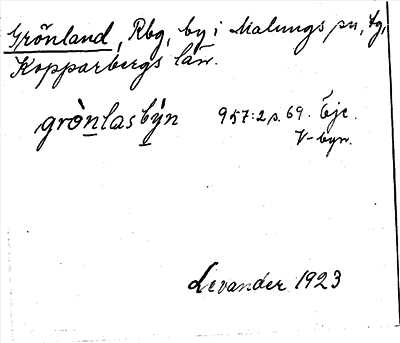 Grönland, Rbg, by i Malungs sn, fg,
Kopparbergs län.
grò̀nlasbýn 957:2 s. 69. Eje.
V-byn.
Levander 1923